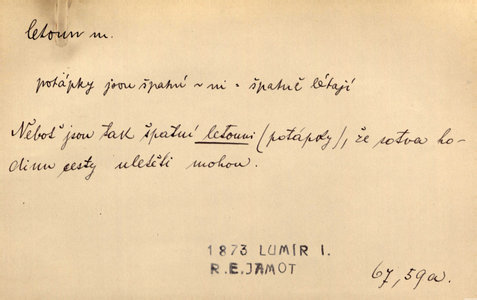 letoun m.
potápky jsou špatní ~ni = špatně létají
Neboť jsou tak špatní letouni (potápky), že sotva ho-
dinu cesty uletěti mohou.
1873 LUMÍR I.
R.E.JAMOT
67,59a.